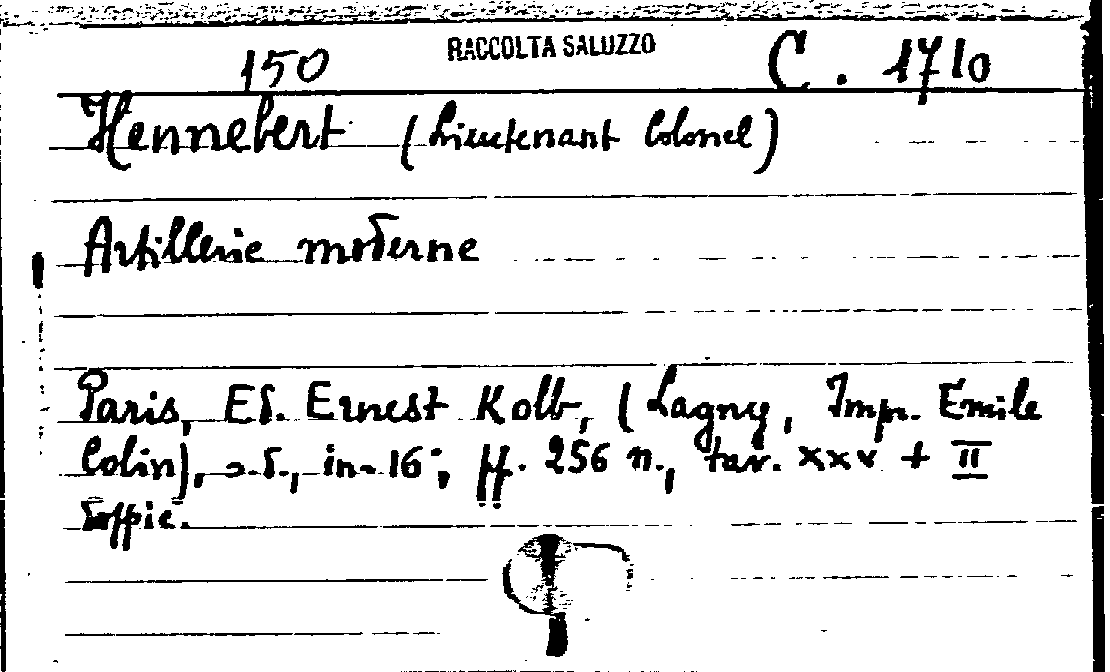 RACCOLTA SALUZZO
150 C. 1710
Hennebert (Lieutenant Colonel)
Artillerie moderne
Paris, Ed. Ernest Kolb, (Lagny, Impr. Emile
Colin), s.d., in-16°, pp. 256 n., tav. XXV + II
doppie.